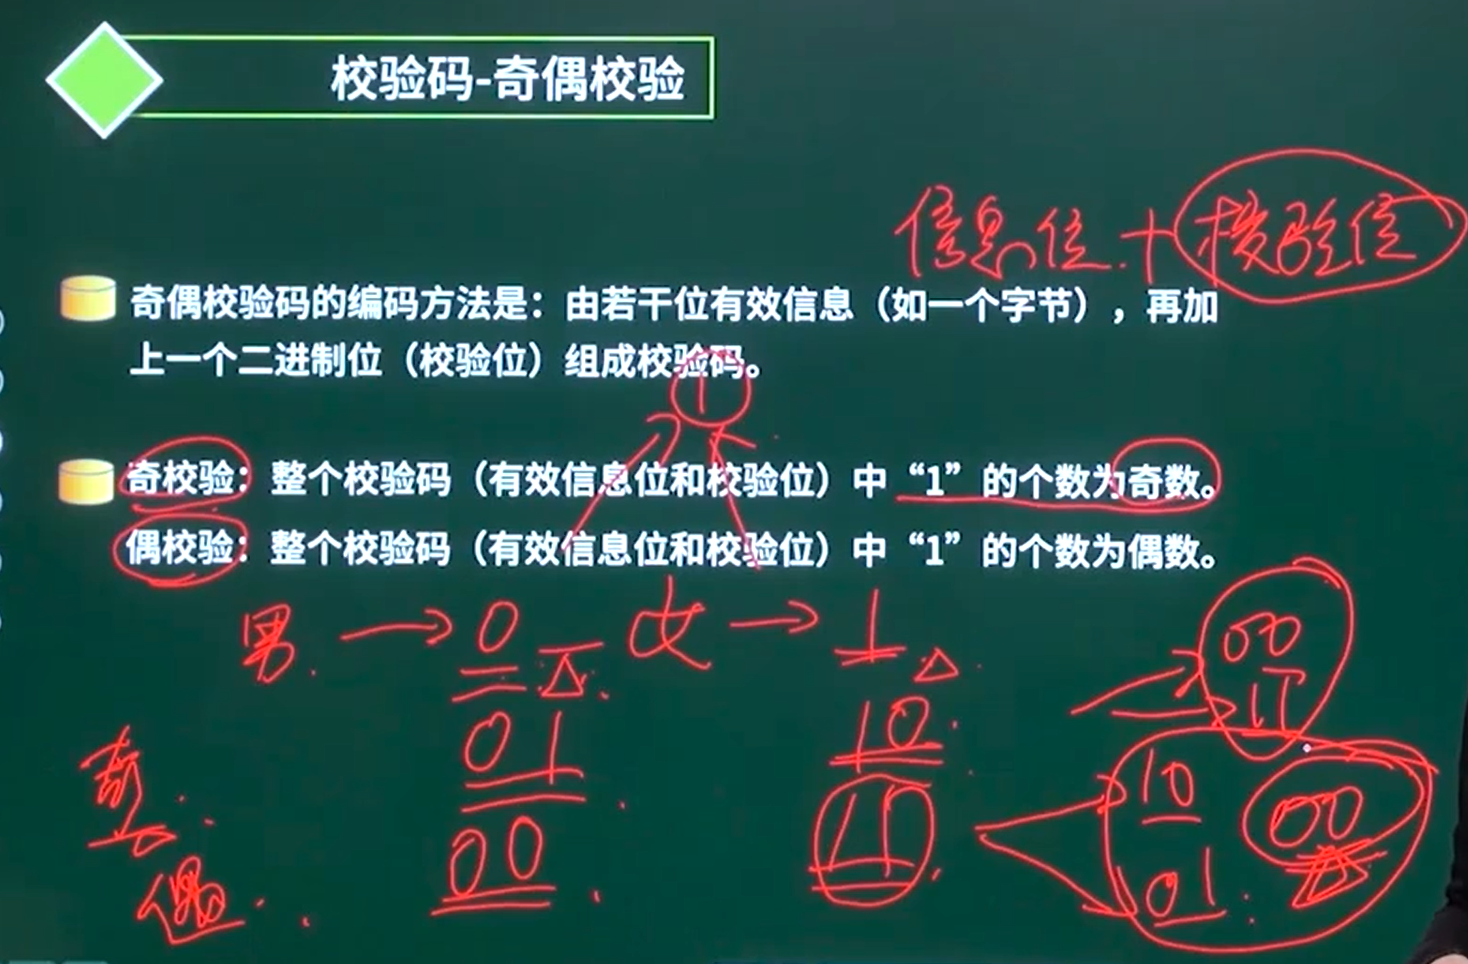 校验码-奇偶校验
信息位+校验位
奇偶校验码的编码方法是：由若干位有效信息（如一个字节），再加
上一个二进制位（校验位）组成校验码。
1
奇校验：整个校验码（有效信息位和校验位）中“1”的个数为奇数。
偶校验：整个校验码（有效信息位和校验位）中“1”的个数为偶数。
男 → 0 女 → 1
00
11
奇 01 10
10 00
偶 00 11
01